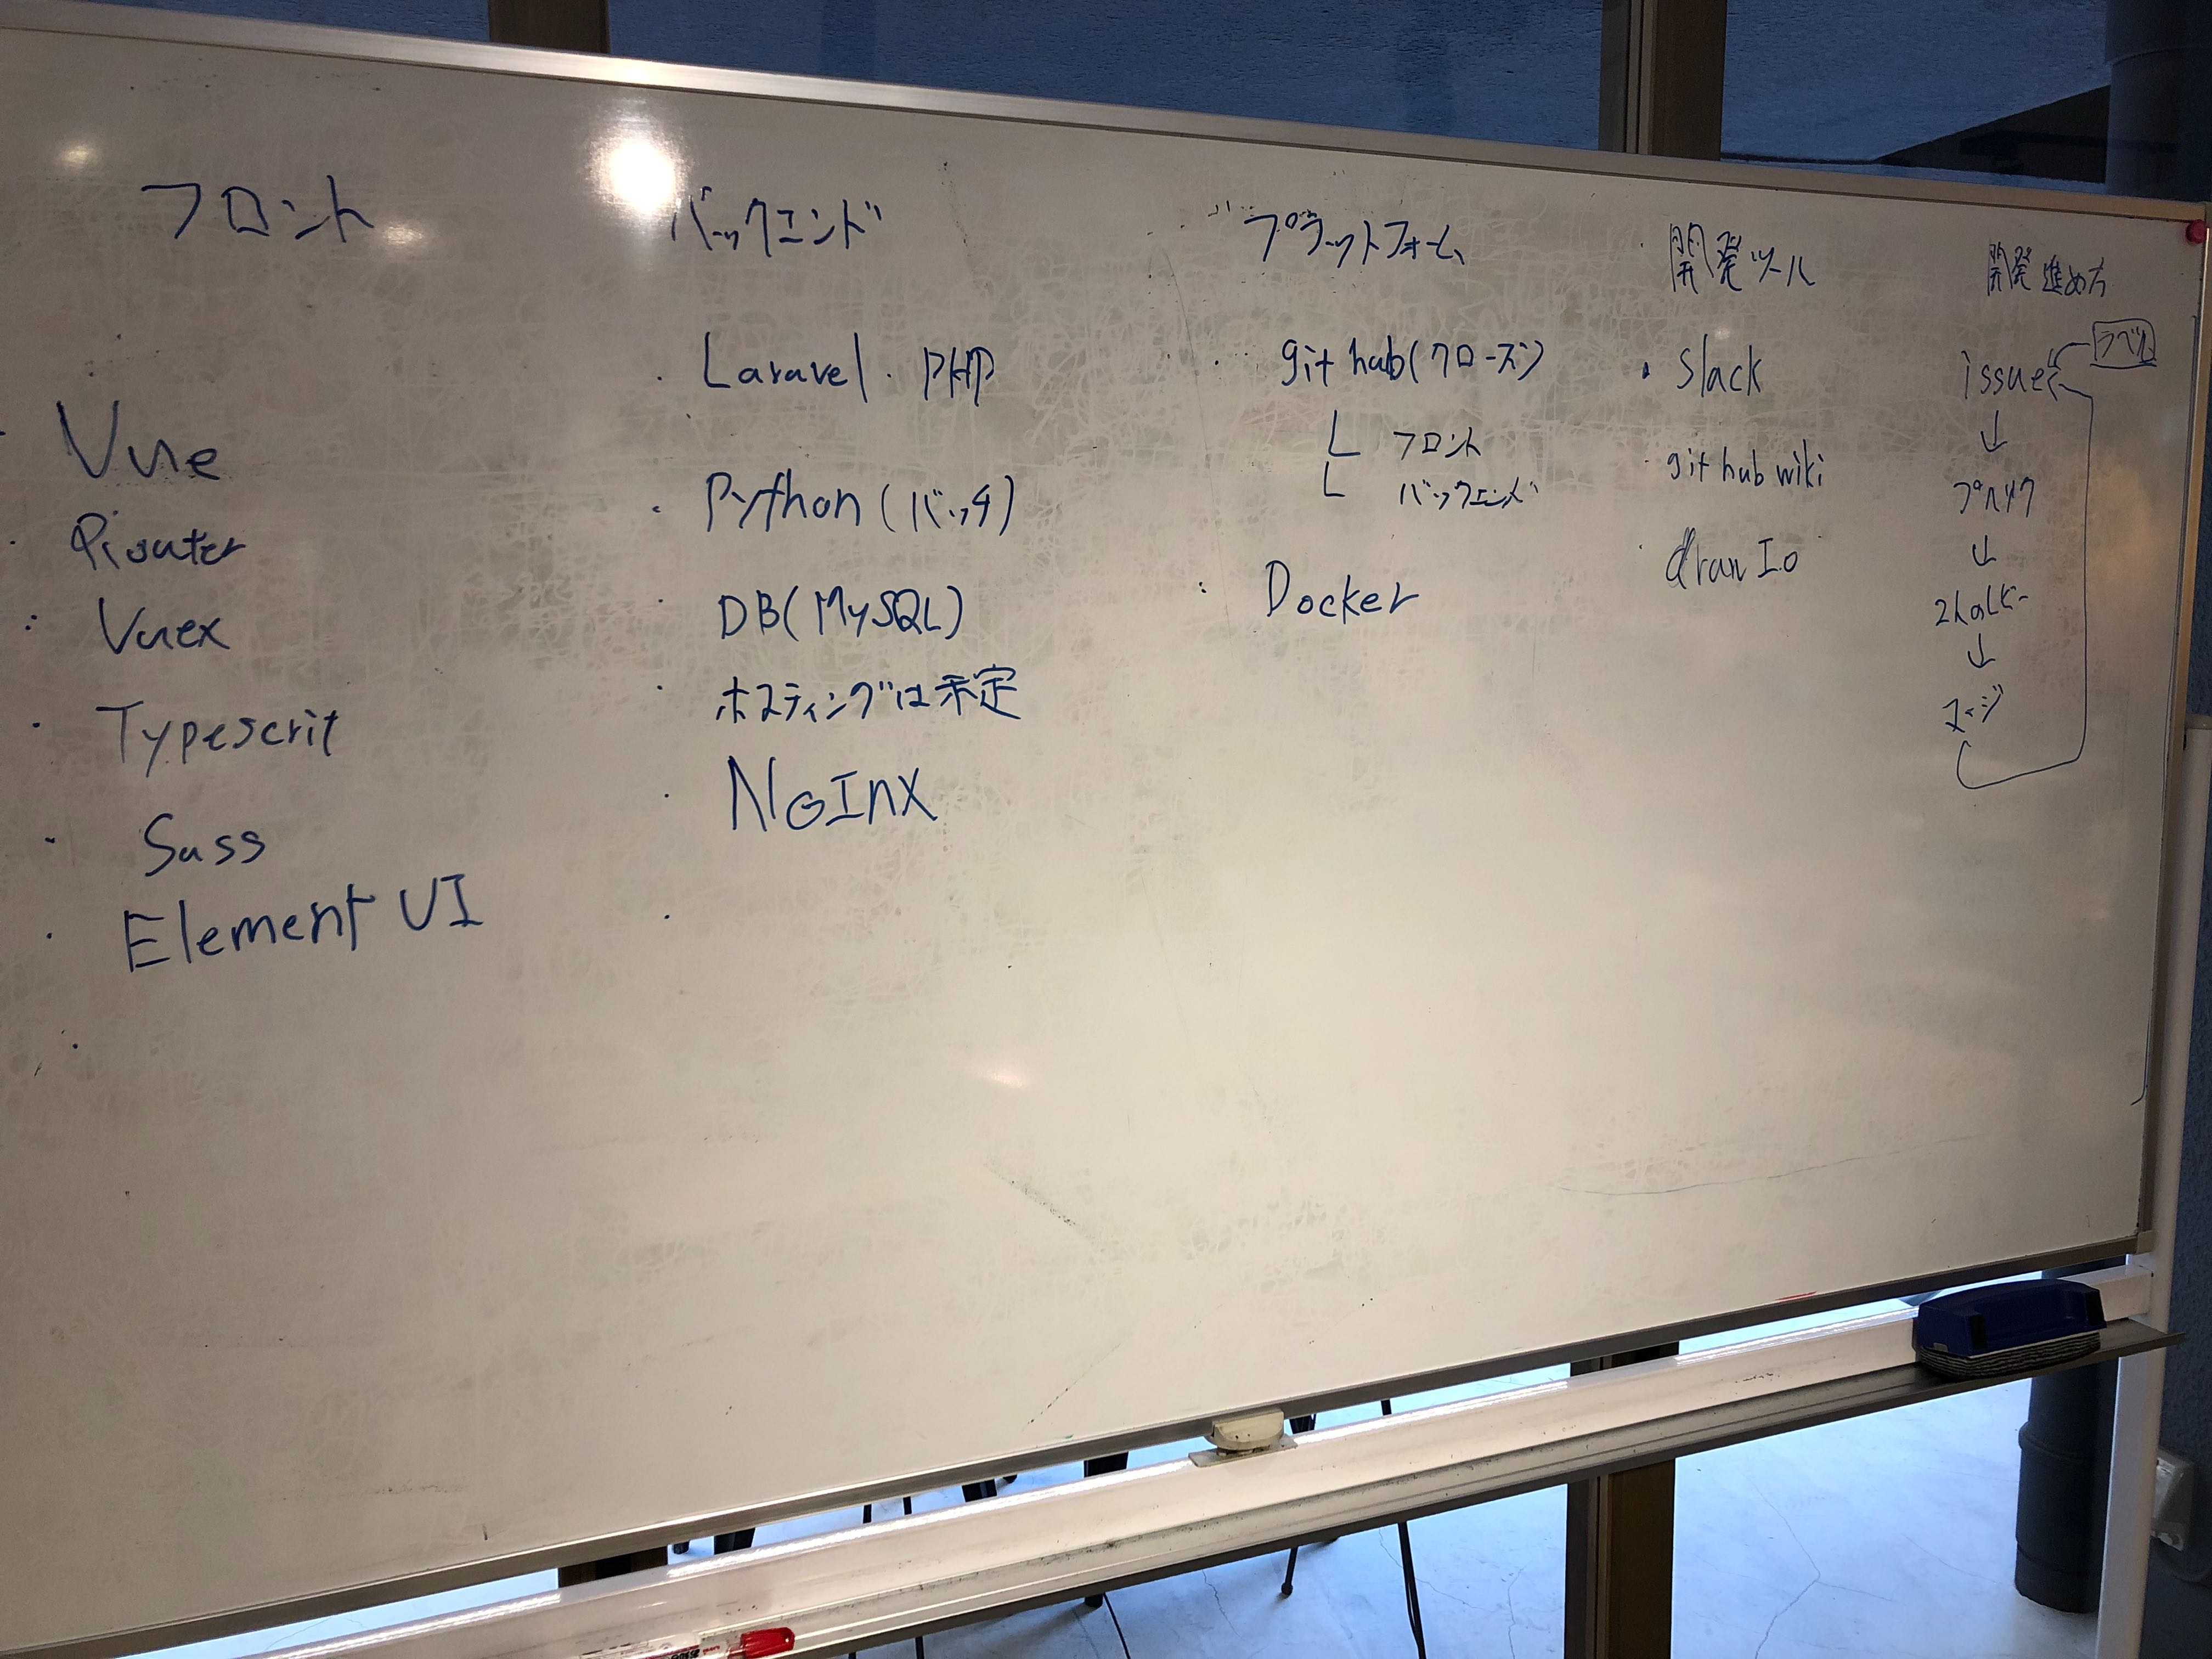 フロント
Vue
Riouter
Vuex
Typescrit
Sass
Element UI
バックエンド
Laravel・PHP
Python(バッチ)
DB(MySQL)
ホスティングは未定
NGInx
プラットフォーム
git hub(クローズ)
フロント
バックエンド
Docker
開発ツール
slack
git hub wiki
draw I.o
開発進め方
ラベル
issue
↓
プルリク
↓
2人のレビュー
↓
マージ